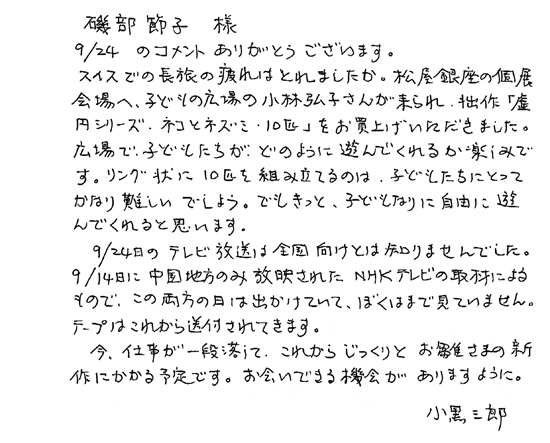 磯部 節子 様
9/24 のコメント ありがとう ございます。
スイスでの長旅の疲れはとれましたか。松屋銀座の個展
会場へ、子どもの広場の小林弘子さんが来られ、拙作「虚
円シリーズ・ネコとネズミ・10匹」をお買上げいただきました。
広場で、子どもたちが、どのように遊んでくれるか楽しみで
す。リング状に10匹を組み立てるのは、子どもたちにとって
かなり難しいでしょう。でもきっと、子どもなりに自由に遊
んでくれると思います。
9/24日のテレビ放送は全国向けとは知りませんでした。
9/14日に中国地方のみ放映されたNHKテレビの取材による
もので、この両方の日は出かけていて、ぼくはまだ見ていません。
テープはこれから送付されてきます。
今、仕事が一段落して、これからじっくりとお雛さまの新
作にかかる予定です。お会いできる機会がありますように。
小黒三郎